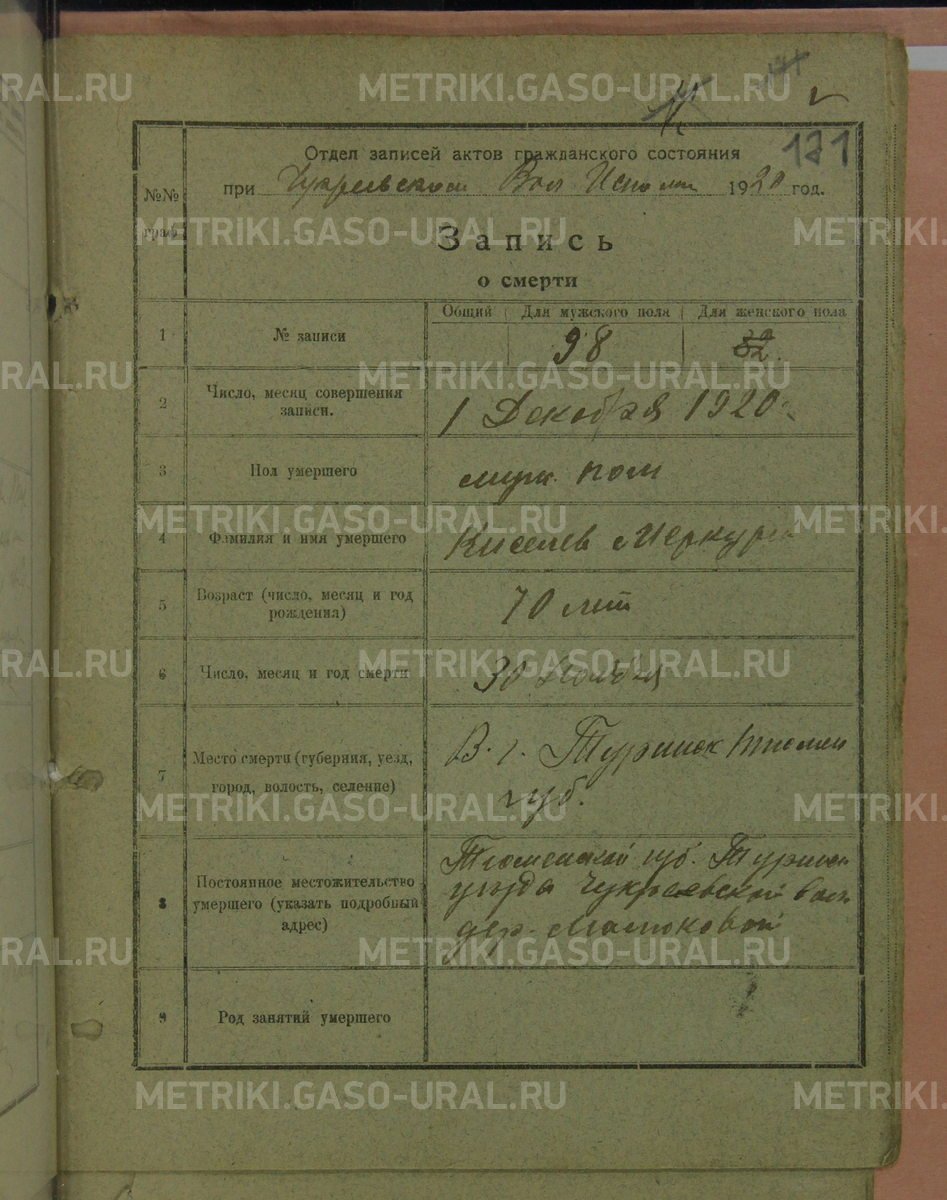 METRIKI.GASO-URAL.RU
171
Отдел записей актов гражданского состояния
при Чукреевском Вол Исполк 1920 год.
№№ граф
Запись
о смерти
Общий Для мужского пола Для женского пола
1 № записи 98
2 Число, месяц совершения записи. 1 Декабря 1920
3 Пол умершего муж. пол
4 Фамилия и имя умершего Киселев Меркури
5 Возраст (число, месяц и год рождения) 70 лет
6 Число, месяц и год смерти 30 Ноября
7 Место смерти (губерния, уезд, город, волость, селение) В. г. Туринск Тюмен
губ.
8 Постоянное местожительство умершего (указать подробный адрес) Тюменской губ. Туринск
уезда Чукреевской вол
дер.
9 Род занятий умершего